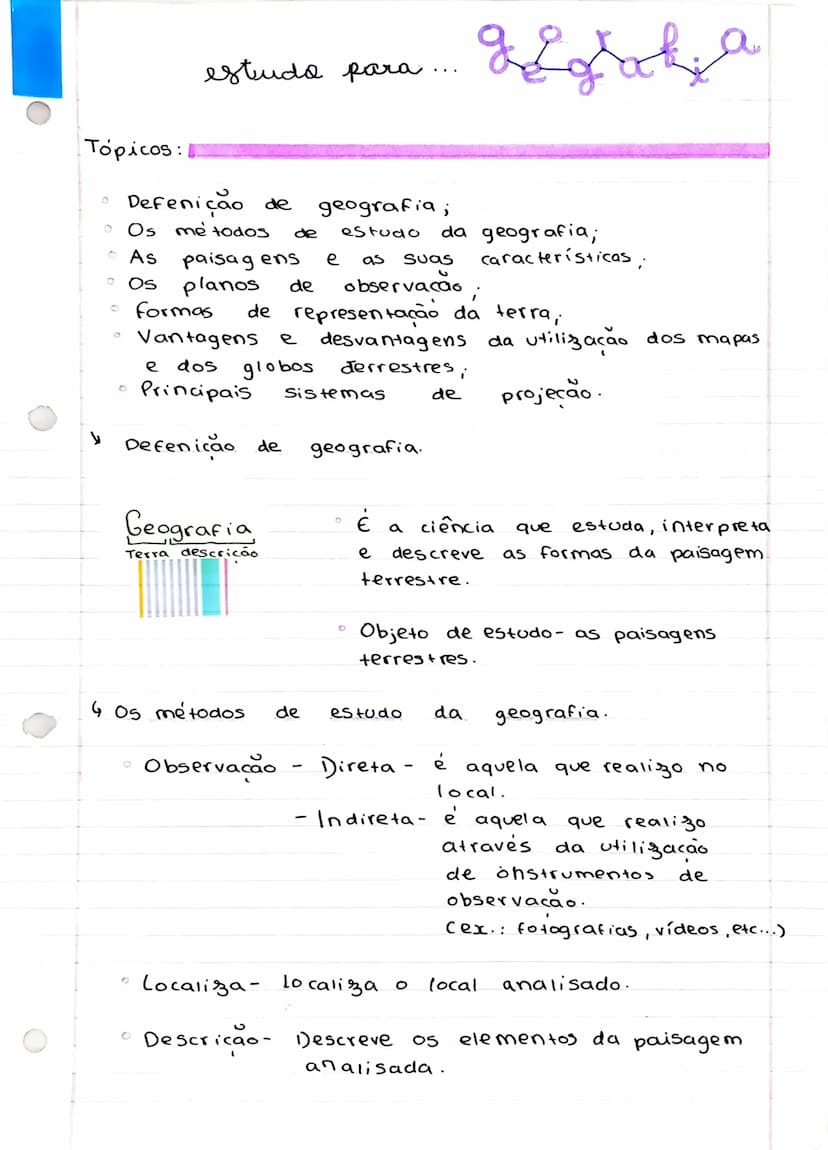 estudo para... geografia
Tópicos:
Defenição de geografia;
Os métodos de estudo da geografia;
As paisagens e as suas características;
Os planos de observação;
Formas de representação da terra;
Vantagens e desvantagens da utilização dos mapas
e dos globos terrestres;
Principais sistemas de projeção.
Defenição de geografia.
Geografia
Terra descrição
É a ciência que estuda, interpreta
e descreve as formas da paisagem
terrestre.
Objeto de estudo- as paisagens
terrestres.
↳ Os métodos de estudo da geografia.
Observação - Direta - é aquela que realizo no
local.
- Indireta- é aquela que realizo
através da utilização
de instrumentos de
observação.
(ex.: fotografias, vídeos, etc...)
Localiza- localiza o local analisado.
Descrição- Descreve os elementos da paisagem
analisada.